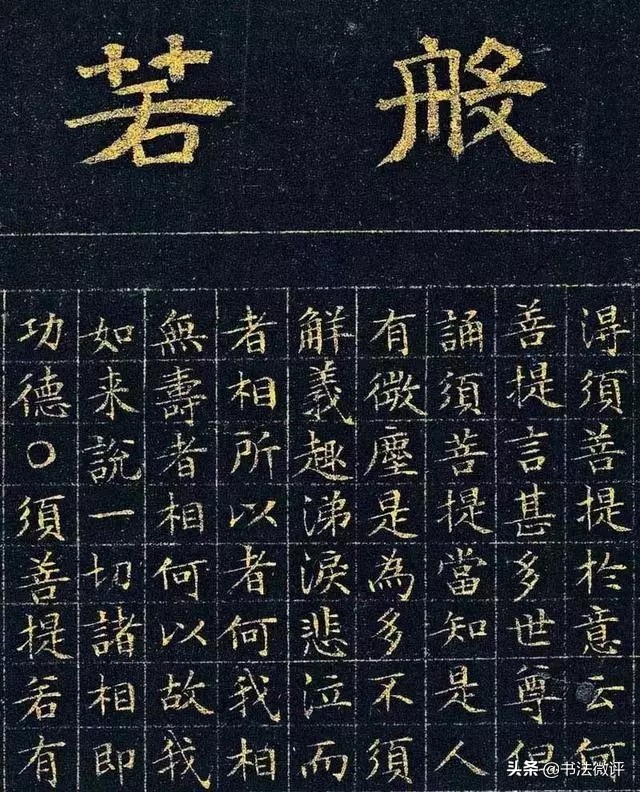 般若
淂須善提扵意云何
善提言甚多世尊但
誦須菩提當知是人
有微塵是為多不須
觧義趣涕淚悲泣而
者相所以者何我相
無壽者相何以故我
如来說一切諸相即
功德〇須善提若有
头条 @书法微评